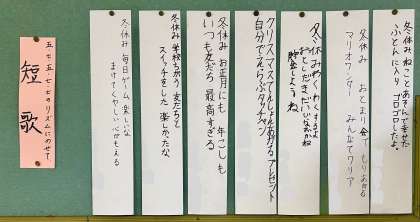 冬休み ねっとあんで幸せだ
ふとんに入り ゴロゴロしたよ。
冬休み おとまり会で もりあがる
マリオワンダー みんなでクリア
冬休みわくわくするなあ
おとしだまだいじなおかね
貯金しとうね
クリスマスでんしょんあがる プレゼント
自分でえらぶタッチペン
冬休み お正月にも 年こしも
いつも友だち 最高すぎる
冬休み 学校ちがう 友だちと
スイッチをした 楽しかったな
冬休み 毎日ゲーム 楽しいな
まけてくやしい 心がもえる
五・七・五・七・七のリズムにのせて
短歌